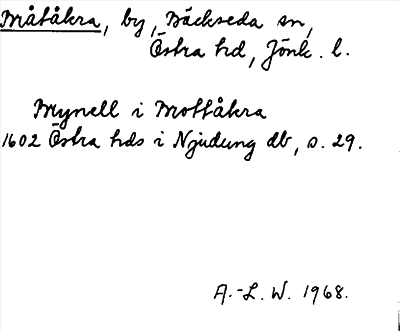 Måtåkra, by, Bäckseda sn,
Östra hd, Jönk. l.
Mynell i Mottåkra
1602 Östra hds i Njudung db, s. 29.
A.-L. W. 1968.